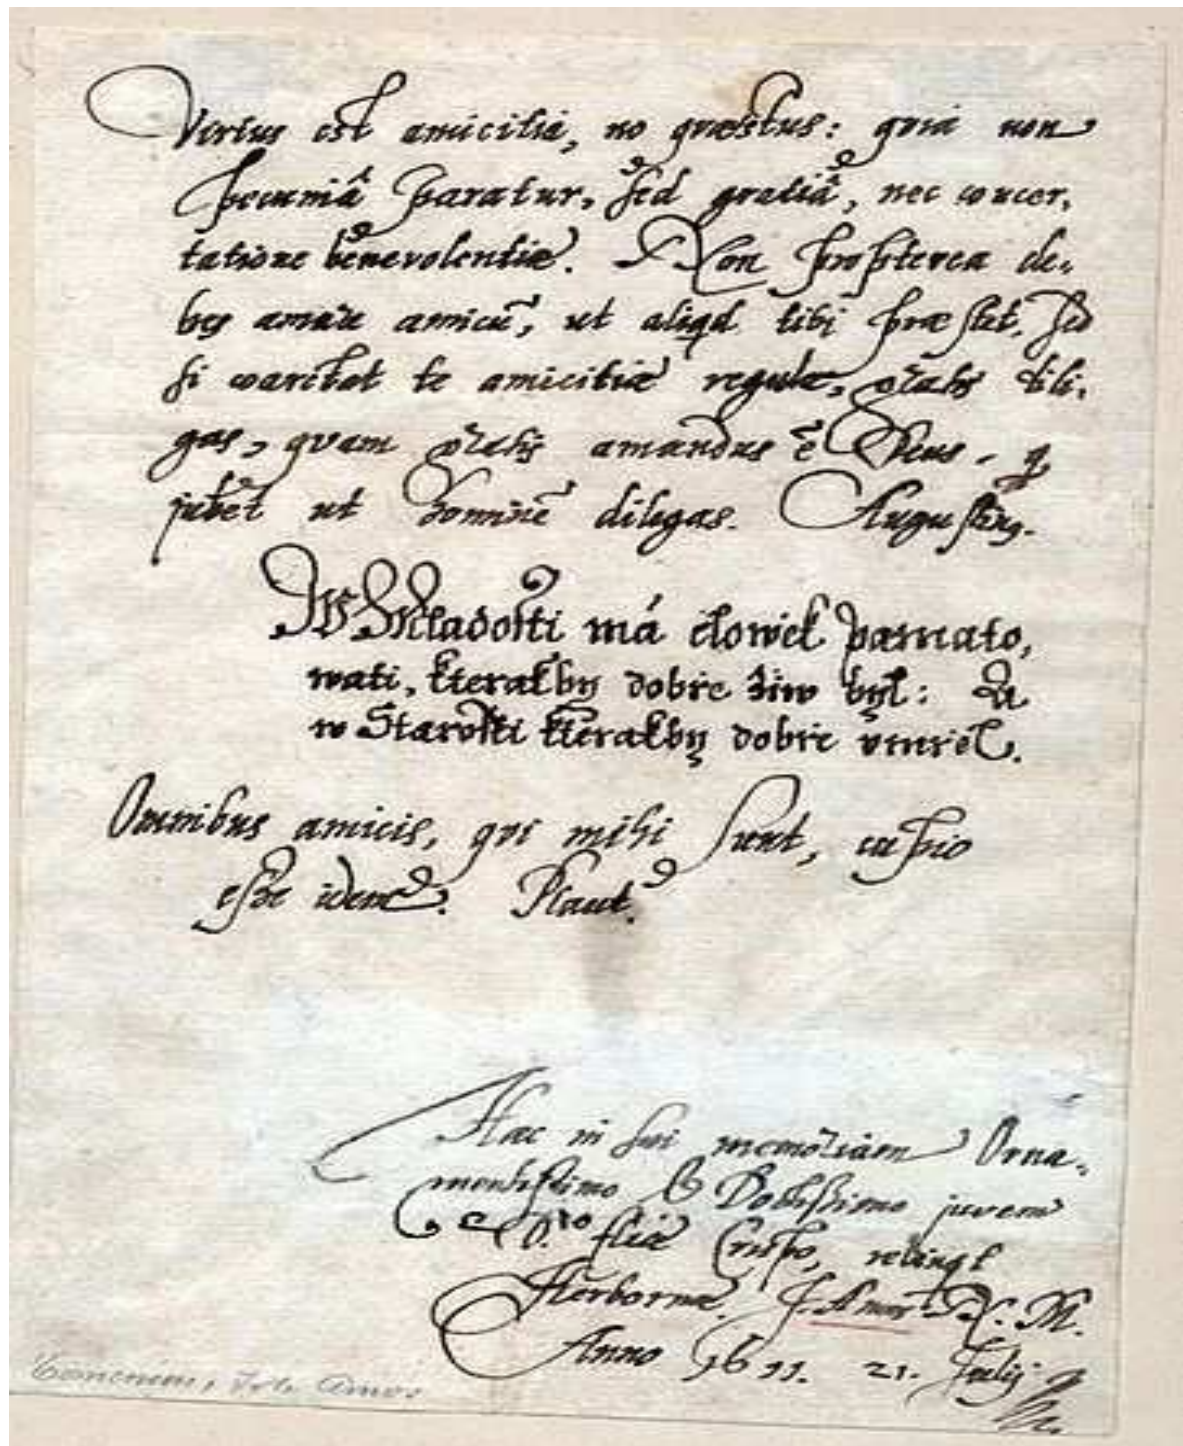 Virtus est amicitia, nō quæstus: quia non
pecuniâ paratur, sed gratiâ, nec concer-
tatione benevolentiæ. Non propterea de-
bes amare amicū, ut aliqd tibi præstet, sed
si coarctat te amicitiæ regula, gratis dili-
gas, quam gratis amandus ē Deus, q
jubet ut hominē diligas. Augustinꝰ.
W Mladosti má člowěk pamato,
wati, kterakby dobře žiw byl: A
w Starosti kterakby dobře vmřel.
Omnibus amicis, qvi mihi sunt, cupio
esse idem. Plaut.
Hæc in sui memoriam Orna-
mentissimo & Doctissimo juveni
D.no Eliæ Crispo, relinqt
Herbornæ. J. Amos N. M.
Anno 1611. 21. Julij
Comenius, Joh. Amos